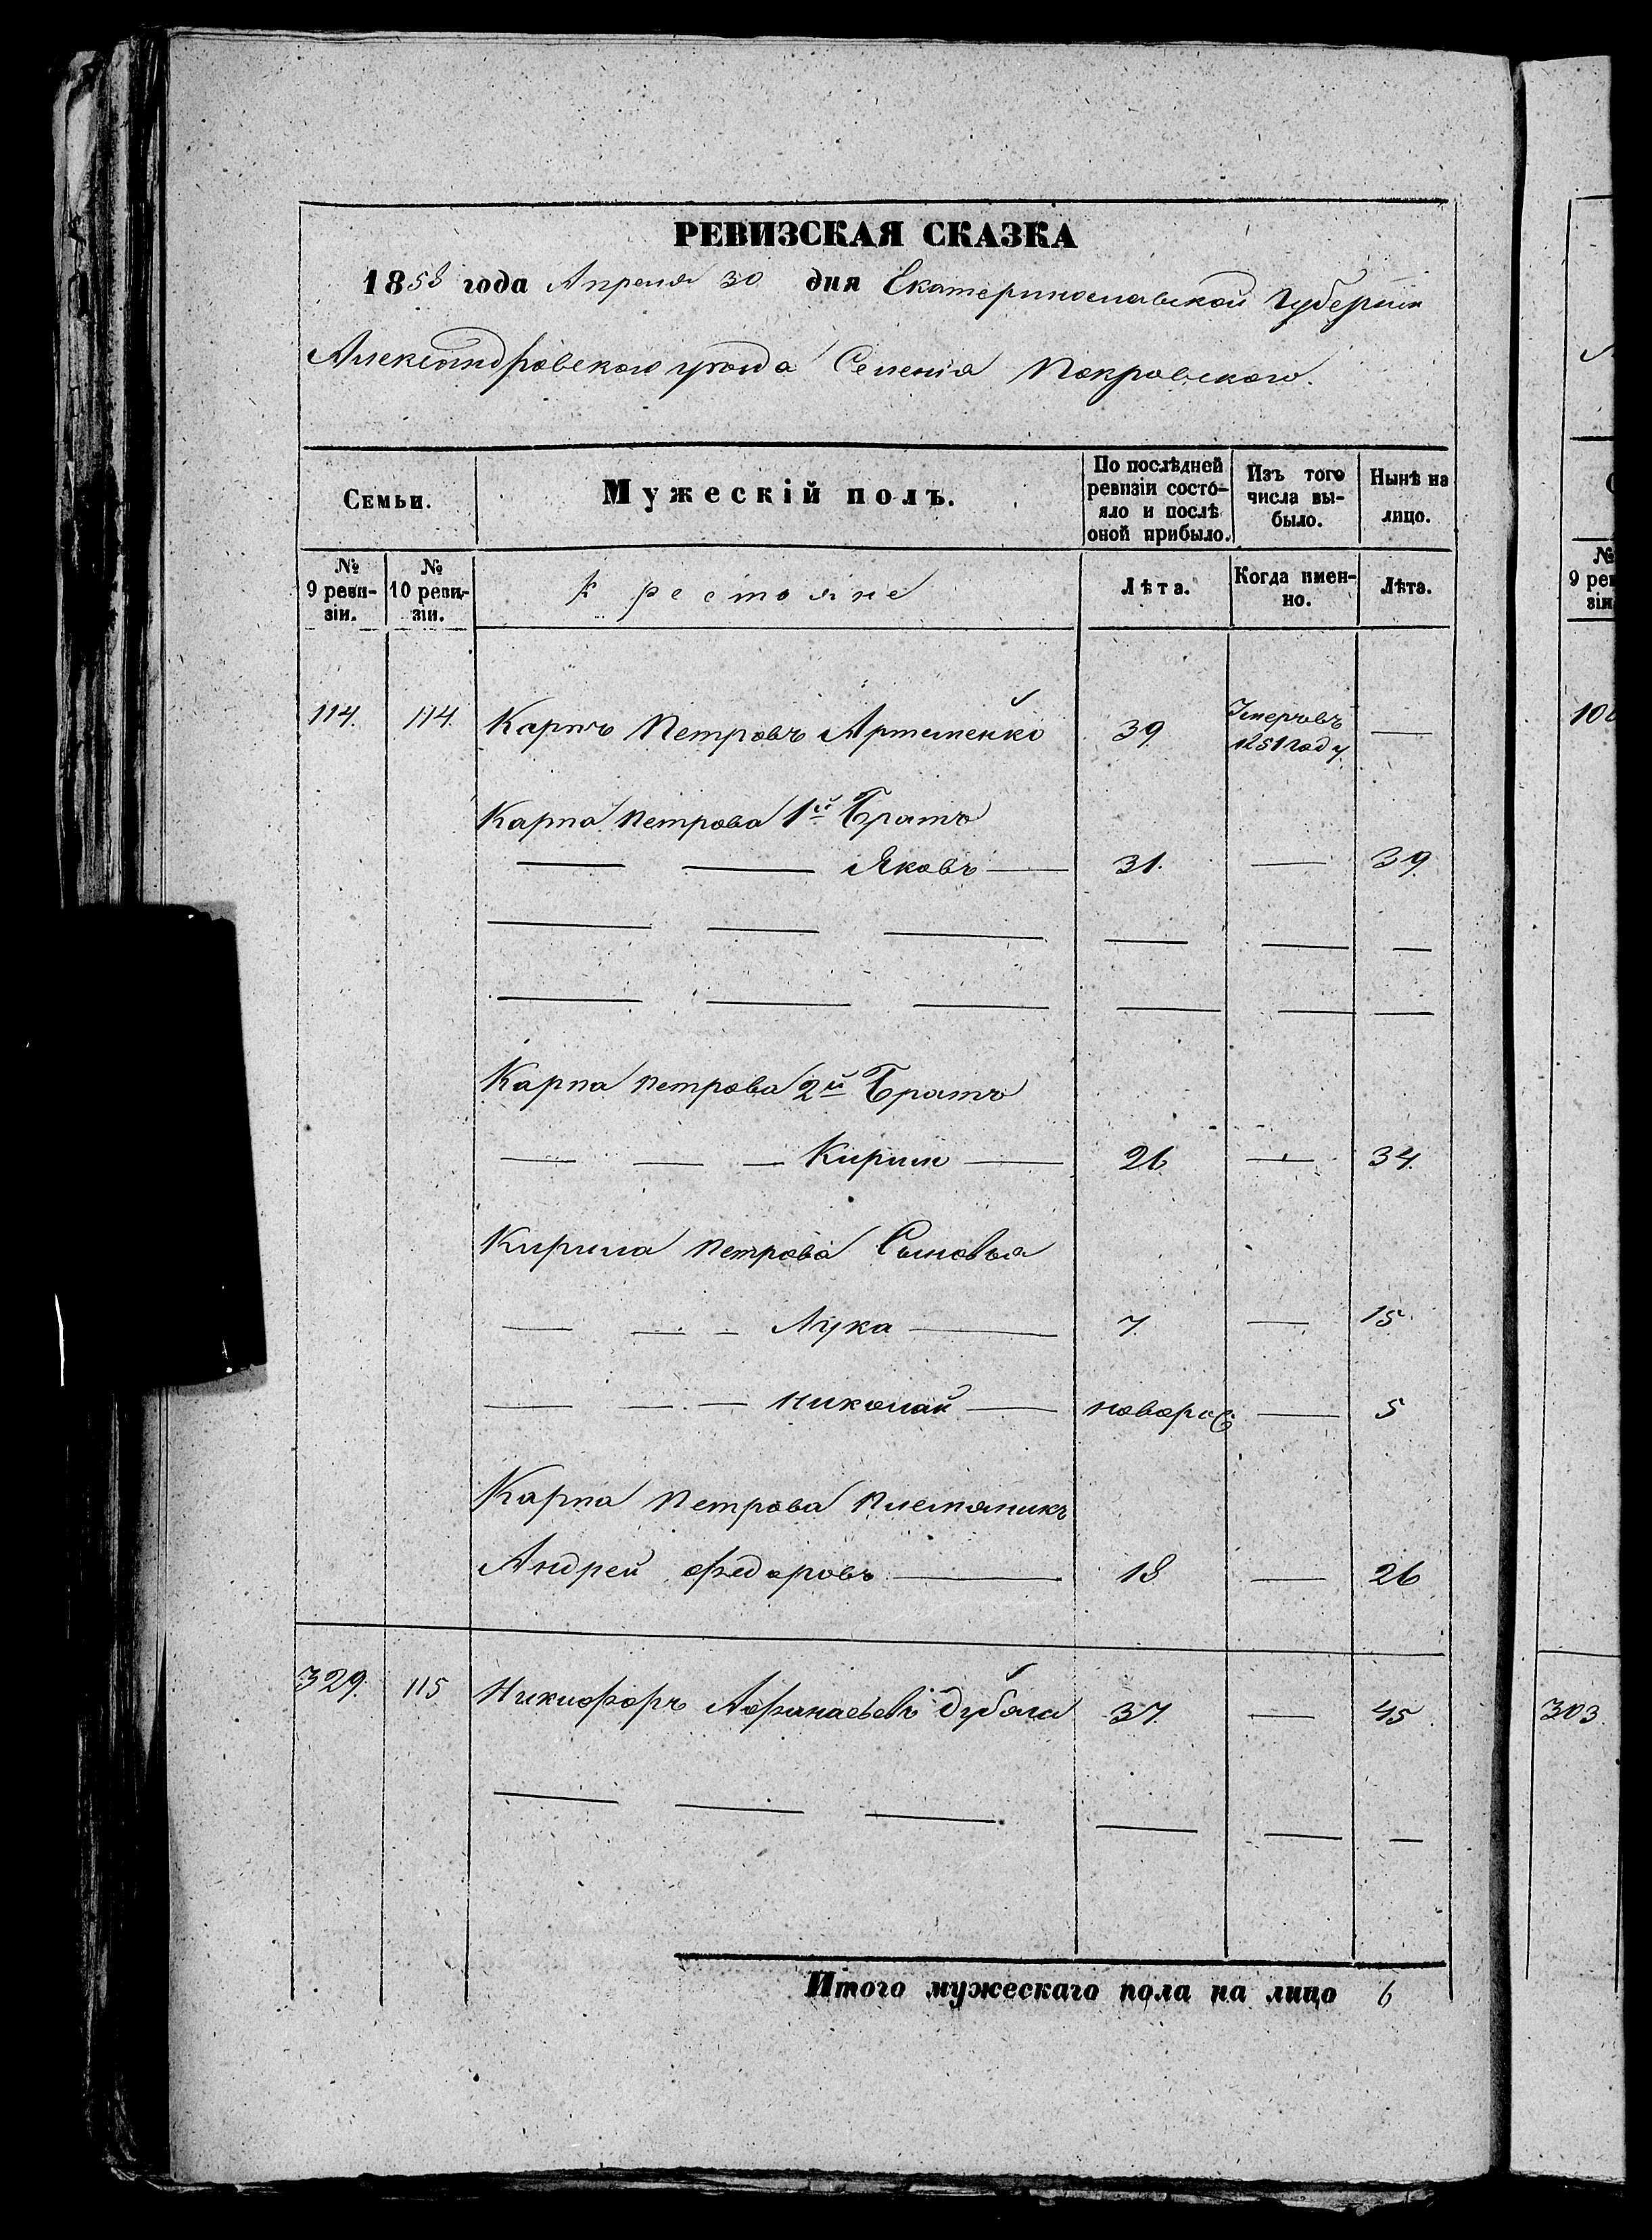 РЕВИЗСКАЯ СКАЗКА
1858 года Апреля 30 дня Екатеринославской Губерніи
Александровского уезда Селенія Покровского.
Семьи. Мужескій полъ. По послѣдней ревизіи состояло и послѣ оной прибыло. Изъ того числа выбыло. Нынѣ на лицо.
№ 9 ревизіи. № 10 ревизіи. Крестояне Лѣта. Когда именно. Лѣта.
114. 114. Карпъ Петровъ Артеменко 39. Умеръ въ 1851 году —
Карпа Петрова 1й Братъ
— — Яковъ — 31. — 39
— — — — — —
— — — — — —
Карпа Петрова 2й Братъ
— — — Кирило — 26 — 34.
Кирила Петрова Сыновья
— — — Лука — 7. — 15.
— — — Николай — новорож — 5
Карпа Петрова племяникъ
Андрей Федоровъ — 18 — 26
329. 115 Никифоръ Афанасьевъ Дубяга 37. — 45
— — — — — —
Итого мужескаго пола на лицо 6
№
9 реви
зіи
303.